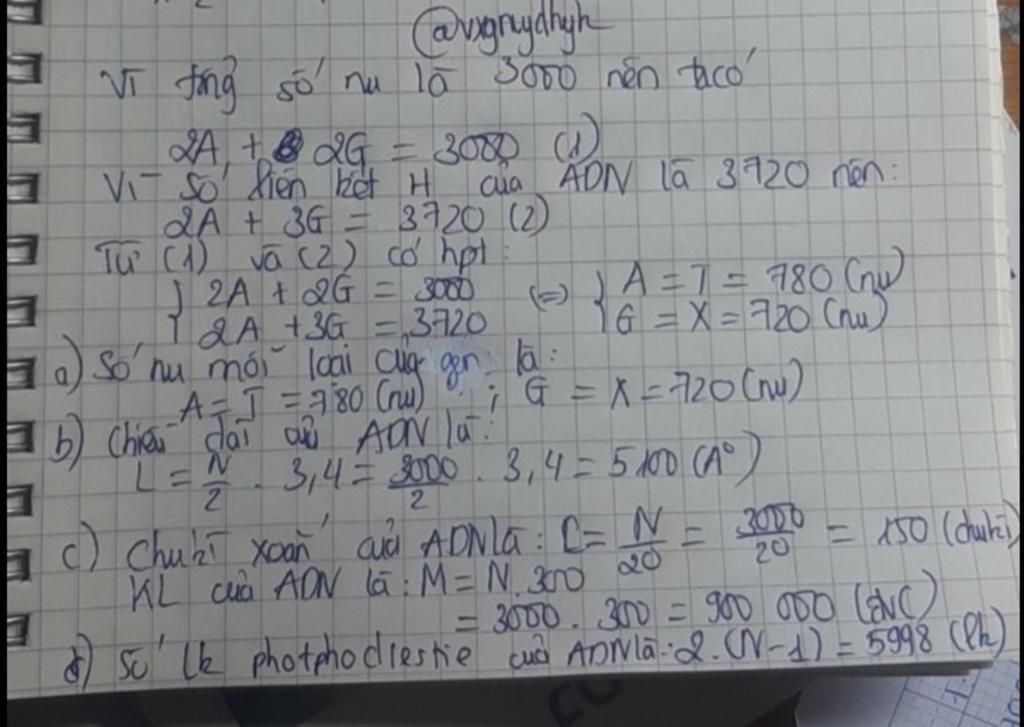 @vxgnuydhyh
Vì tổng số nu là 3000 nên ta có
2A + 2G = 3000 (1)
Vì số liên kết H của ADN là 3720 nên:
2A + 3G = 3720 (2)
Từ (1) và (2) có hpt:
{ 2A + 2G = 3000 (=) { A = T = 780 (nu)
{ 2A + 3G = 3720 { G = X = 720 (nu)
a) Số nu mỗi loại của gen là:
A = T = 780 (nu) ; G = X = 720 (nu)
b) Chiều dài của ADN là:
L = N/2 . 3,4 = 3000/2 . 3,4 = 5100 (A°)
c) Chu kì xoắn của ADN là: C = N/20 = 3000/20 = 150 (chu kì)
KL của ADN là: M = N.300
= 3000.300 = 900 000 (đvC)
d) Số lk photphodieste của ADN là: 2.(N-1) = 5998 (lk)